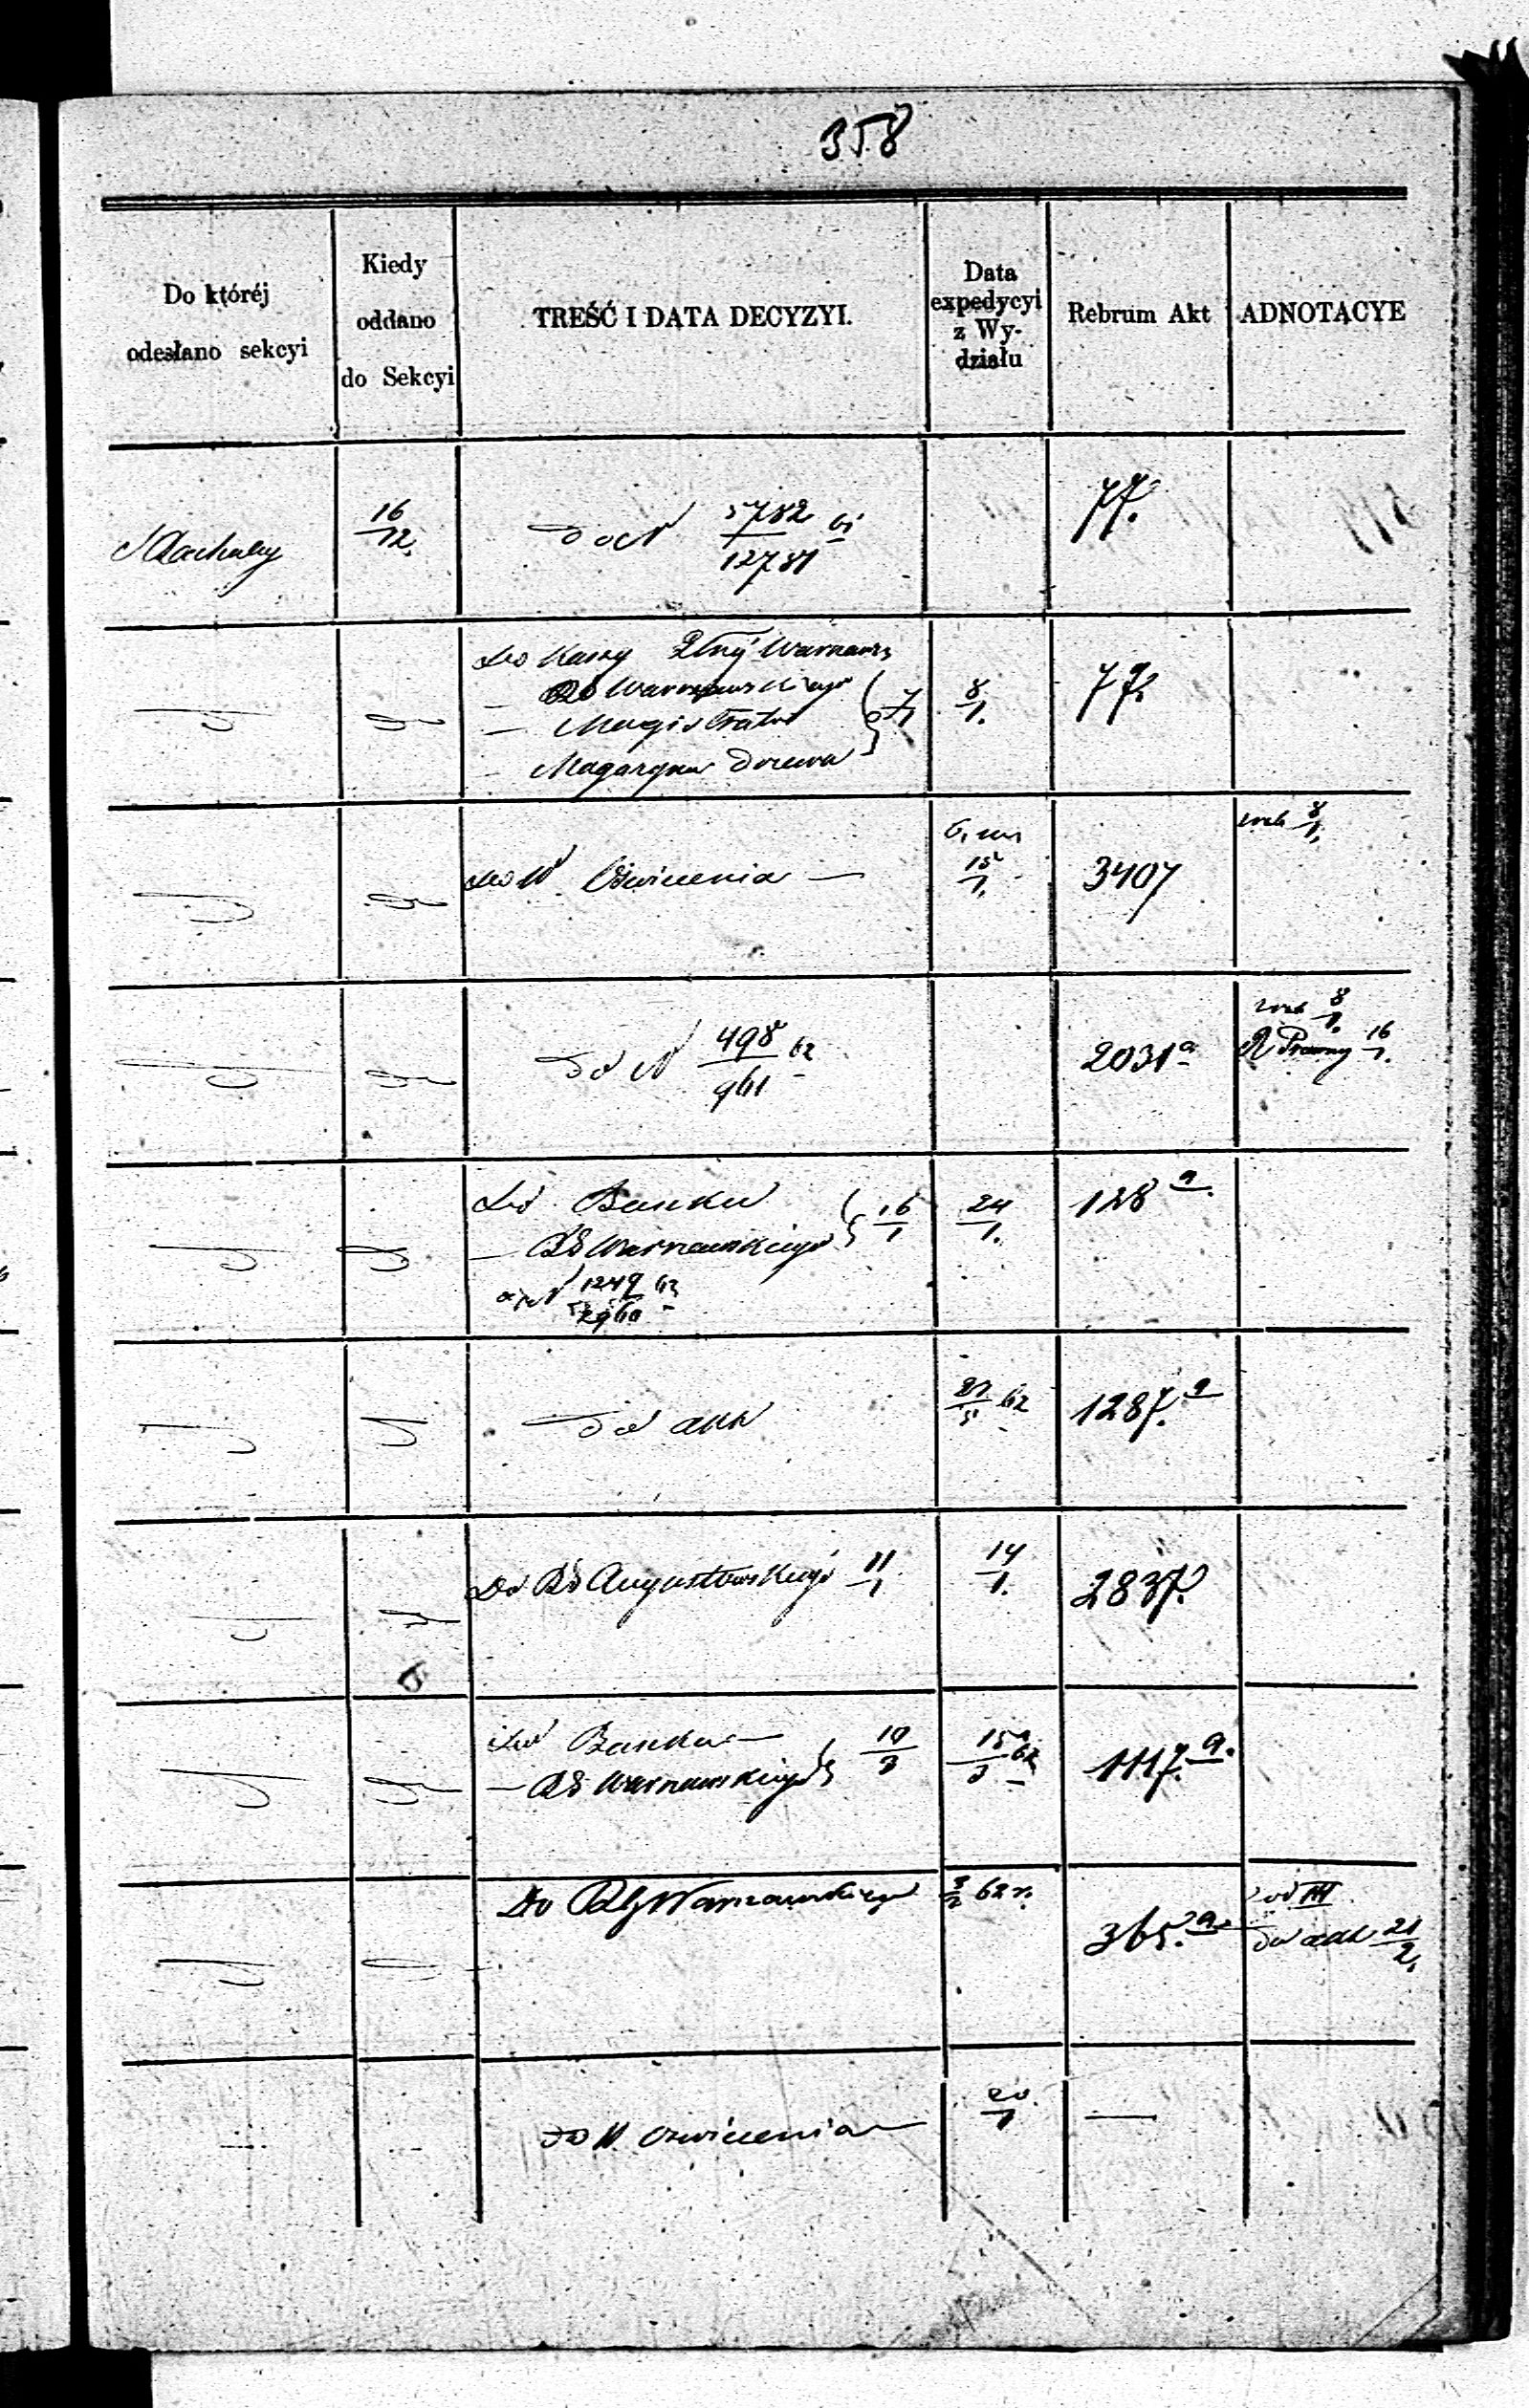 358
Do któréj odesłano sekcyi
Kiedy oddano do Sekcyi
TREŚĆ I DATA DECYZYI.
Data expedycyi z Wydziału
Rebrum Akt
ADNOTACYE
16/12. do N 5782/12781 61 77.
Do Kassy
— RG Warszawskiego
— Magistratu 7/1 8/1. 77.
— Magazynu Drzewa
Do W. Oświecenia — 15/1. 3407 8/1.
do N 498/961 62 2031a 8/1. R Prawny 16/1.
Do Banku
— RG Warszawskiego 16/1 24/1. 128 a.
N 1249/2960 62
do akt 21/5 62 1287. a
Do RG Augustowskiego 11/1 14/1. 2837.
Do Banku —
— RG Warszawskiego 10/3 15/3 62 1117. a.
Do RG Warszawskiego 3/2 62 r. 365. a. od III
do akt 21/2.
do W. Oświecenia 20/1 —